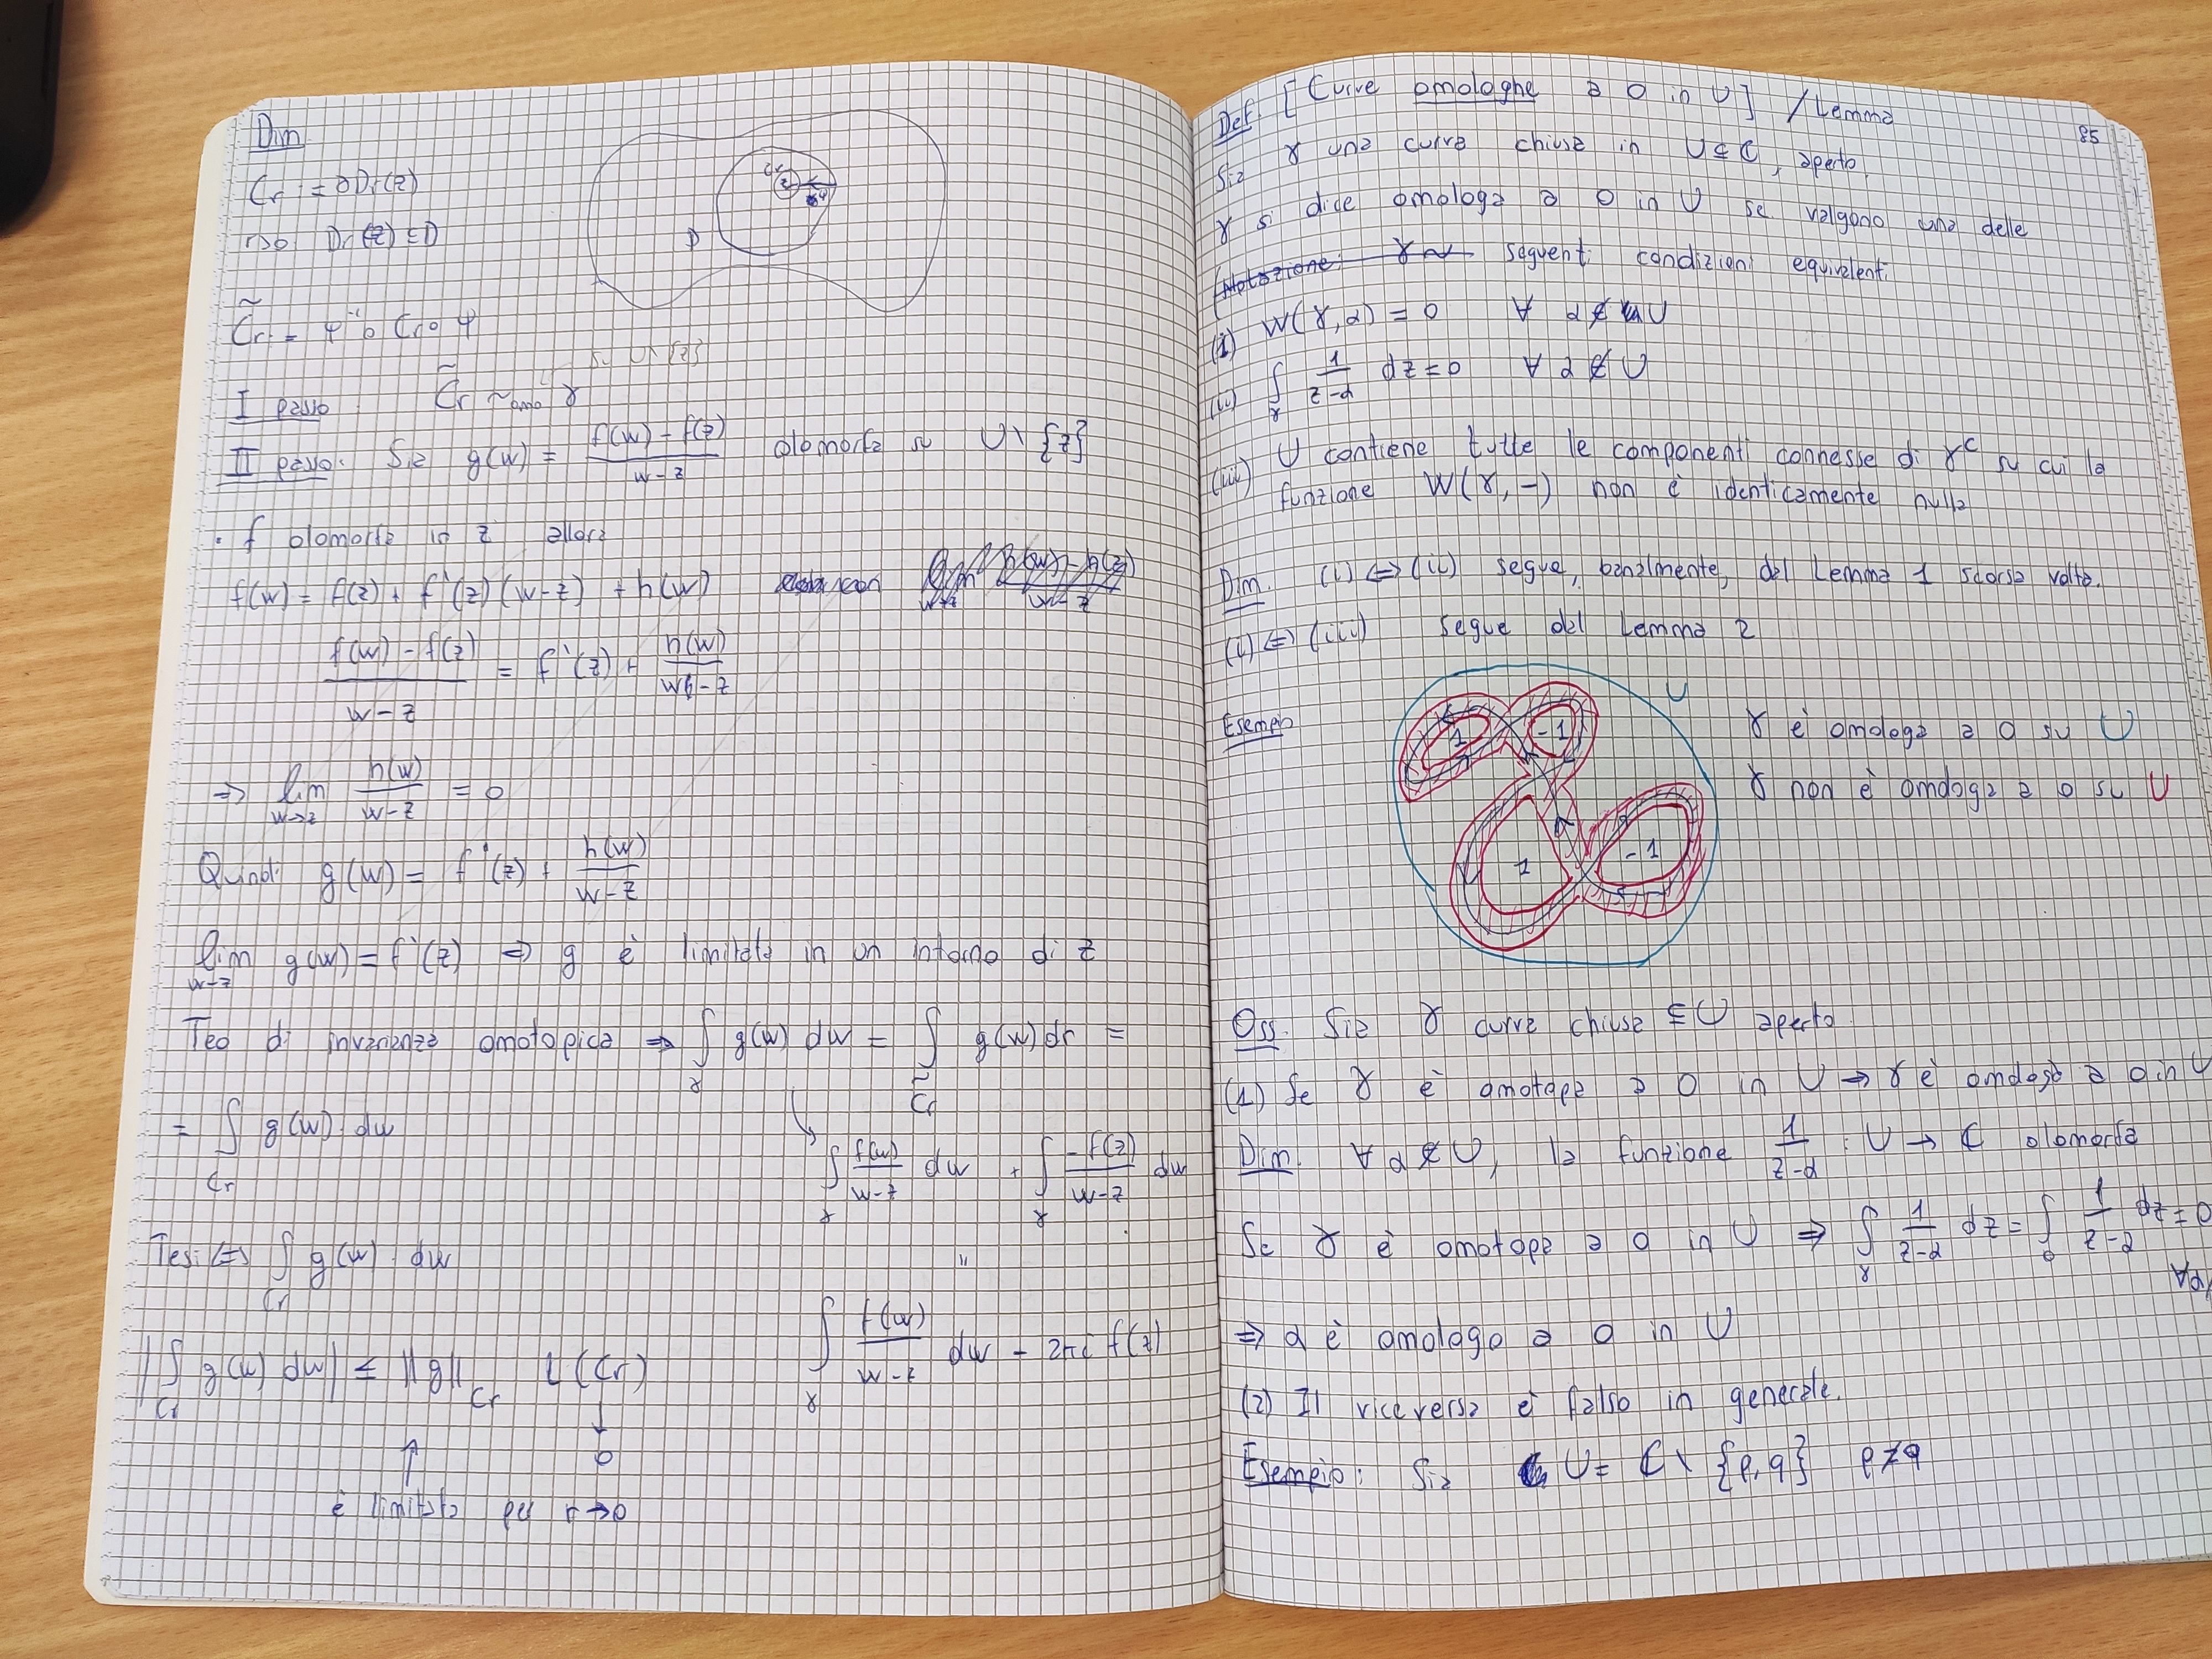 Dim.
C_r := ∂D_r(z)
r>0 D_r(z) ⊆ D
C̃_r := ψ⁻¹ ∘ C_r ∘ ψ
I passo C̃_r ~omo γ su U∖{z}
II passo: Sia g(w) = (f(w) - f(z))/(w-z) olomorfa su U∖{z}
• f olomorfa in z allora
f(w) = f(z) + f'(z)(w-z) + h(w) con
(f(w) - f(z))/(w-z) = f'(z) + h(w)/(w-z)
⇒ lim_{w→z} h(w)/(w-z) = 0
Quindi g(w) = f'(z) + h(w)/(w-z)
lim_{w→z} g(w) = f'(z) ⇒ g è limitata in un intorno di z
Teo di invarianza omotopica ⇒ ∫_γ g(w) dw = ∫_{C̃_r} g(w) dr =
= ∫_{C_r} g(w) dw
∫_γ f(w)/(w-z) dw + ∫_γ -f(z)/(w-z) dw
Tesi ⇔ ∫_{C_r} g(w) dw
"
∫_γ f(w)/(w-z) dw - 2πi f(z)
|∫_{C_r} g(w) dw| ≤ ||g||_{C_r} L(C_r)
↑ ↓
0
è limitata per r→0
85
Def. [Curve omologhe a 0 in U] / Lemma
Sia γ una curva chiusa in U ⊆ ℂ, aperto,
γ si dice omologa a 0 in U se valgono una delle
(Notazione: γ ~ seguenti condizioni equivalenti
(i) W(γ, α) = 0 ∀ α ∉ U
(ii) ∫_γ 1/(z-α) dz = 0 ∀ α ∉ U
(iii) U contiene tutte le componenti connesse di γ^c su cui la
funzione W(γ, -) non è identicamente nulla
Dim. (i) ⇔ (ii) segue, banalmente, dal Lemma 1 scorsa volta.
(i) ⇔ (iii) segue dal Lemma 2
Esempio
U
1
-1
1
-1
γ è omologa a 0 su U
γ non è omologa a 0 su U
Oss. Sia γ curva chiusa ⊆ U aperto
(1) Se γ è omotopa a 0 in U → γ è omologa a 0 in U
Dim. ∀ α ∉ U, la funzione 1/(z-α) : U → ℂ olomorfa
Se γ è omotopa a 0 in U ⇒ ∫_γ 1/(z-α) dz = ∫_0 1/(z-α) dz = 0
⇒ α è omologo a 0 in U
(2) Il viceversa è falso in generale.
Esempio: Sia U = ℂ∖{p,q} p≠q